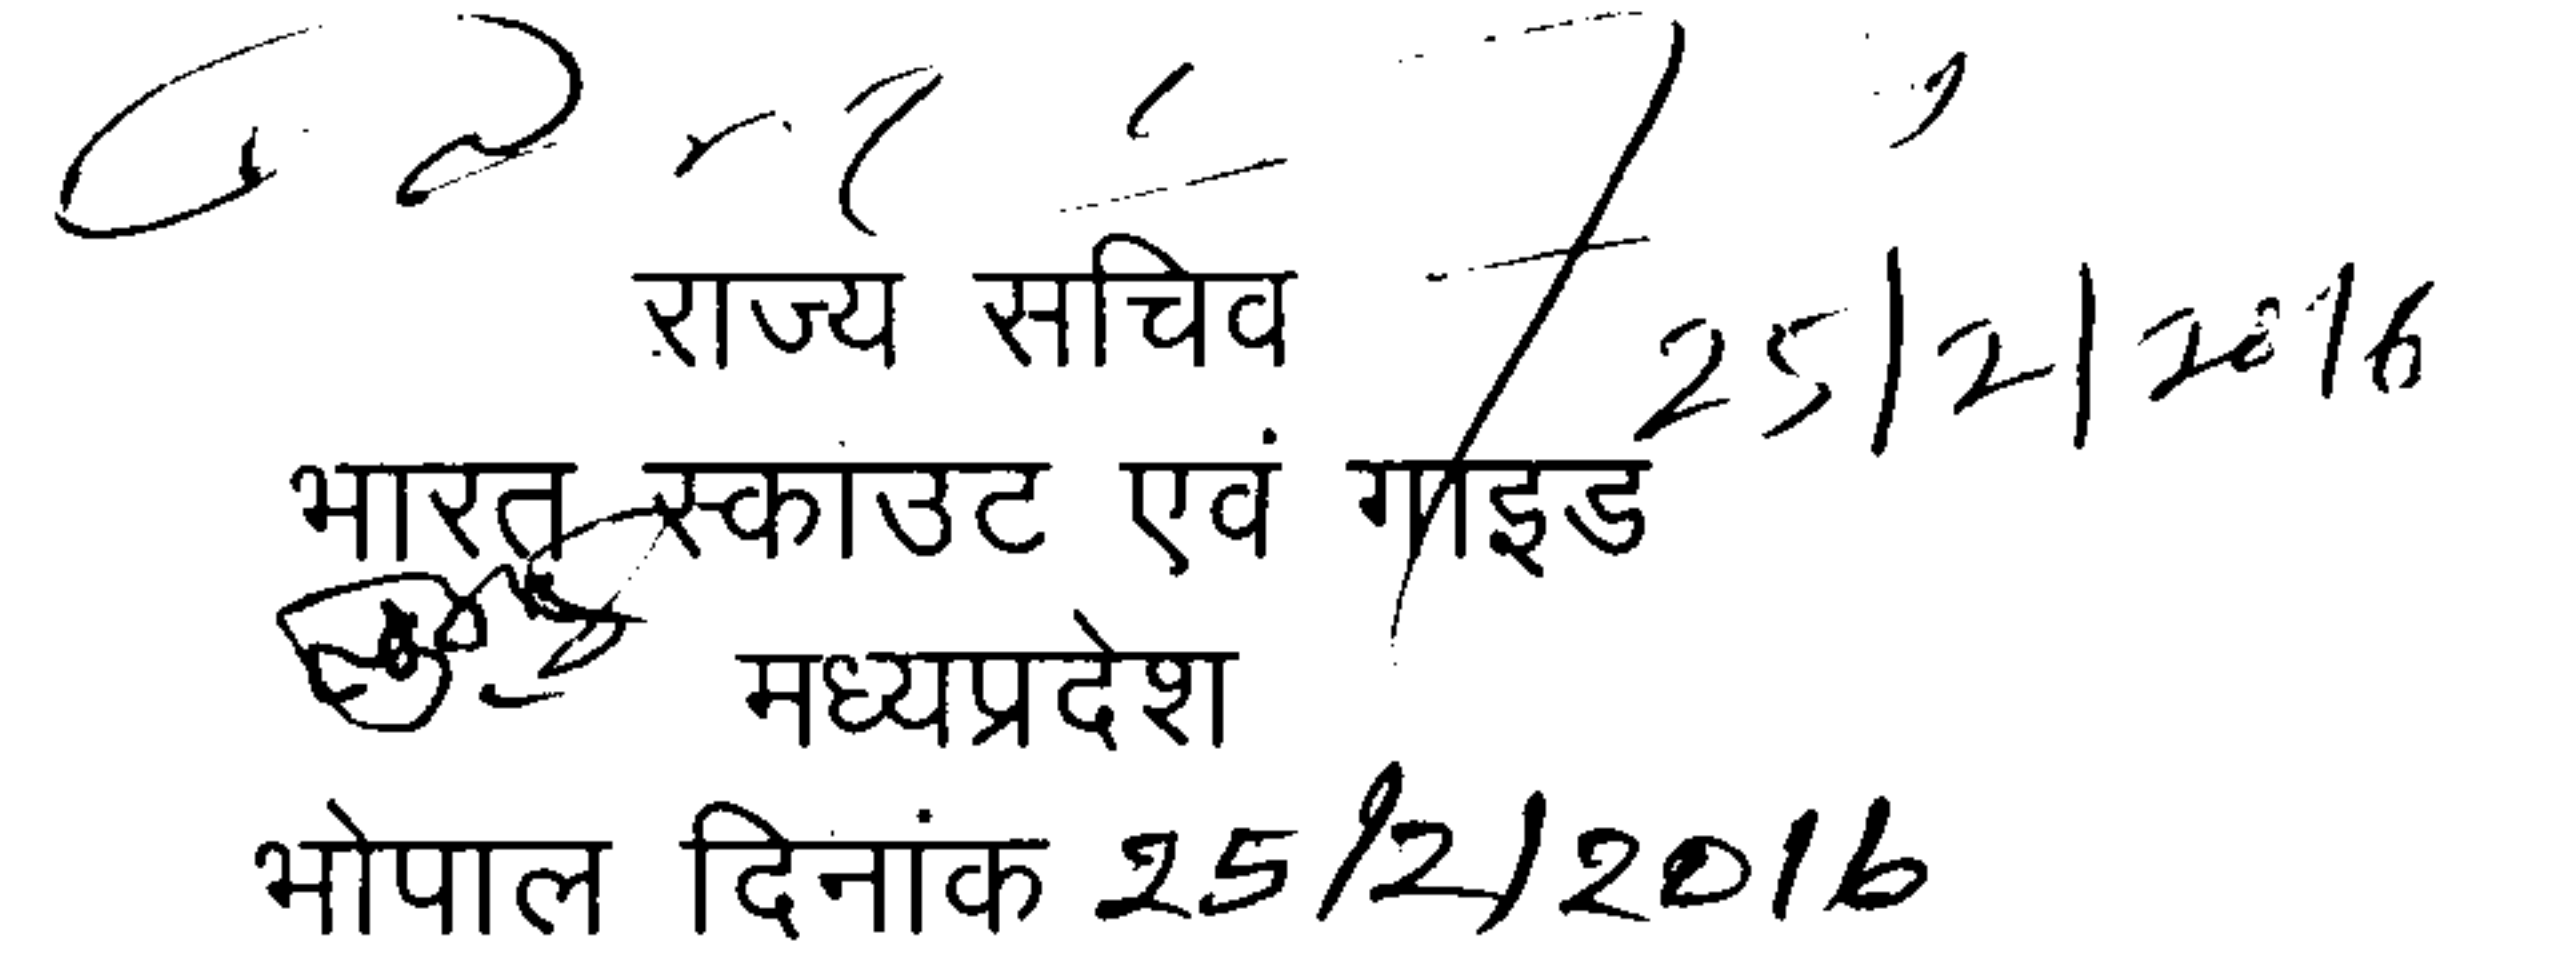 राज्य सचिव
25/2/2016
भारत स्काउट एवं गाइड
मध्यप्रदेश
भोपाल दिनांक 25/2/2016